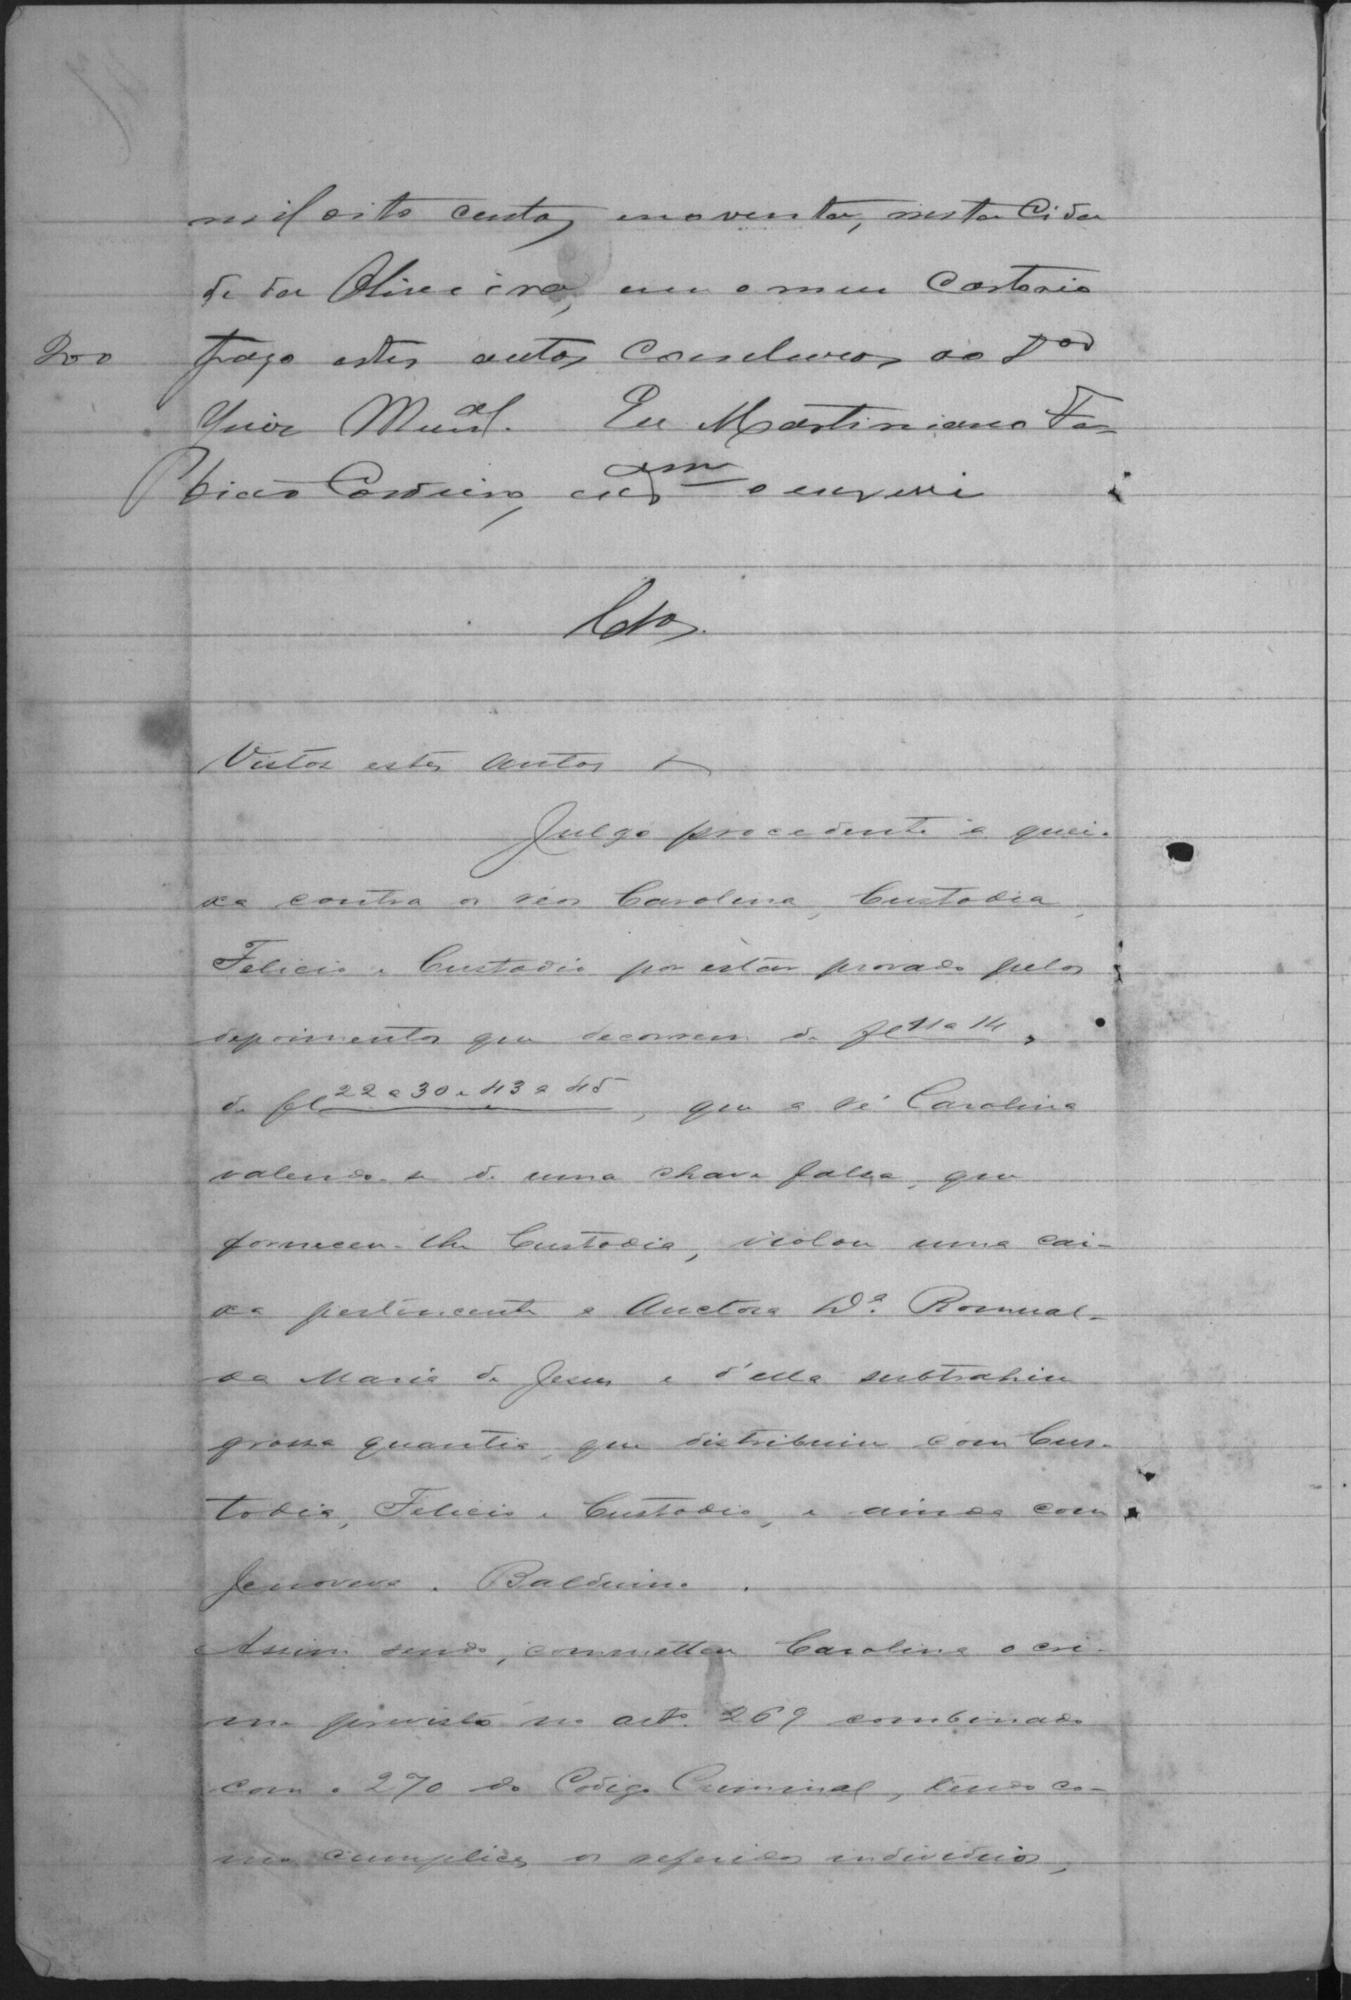 mil oito centos e noventa, nesta Cida
de da Oliveira, em o meu Cartorio
200 faço estes autos Conclusos ao Dor
Juiz Munal. Eu Martiniano Fa
bião Cordeiro, escram o escrevi
Clos.
Vistos estes autos &
Julgo procedente a quei-
xa contra os réos Carolina, Custodia,
Felicio e Custodio por estar provado pelos
depoimentos que decorrem de fl 11 a 14,
de fl 22 a 30 e 43 a 45, que a ré Carolina
valendo-se de uma chave falsa, que
forneceu-lhe Custodia, violou uma cai-
xa pertencente a Auctora D.ª Romual-
da Maria de Jesus e d'ella subtrahiu
grossa quantia que distribuiu com Cus-
todia, Felicio e Custodio, e ainda com
Jenoveva e Balduino.
Assim sendo, commetteu Carolina o cri-
me previsto no arto. 269 combinado
com o 270 do Codigo Criminal, tendo co-
mo cumplices os referidos individuos,